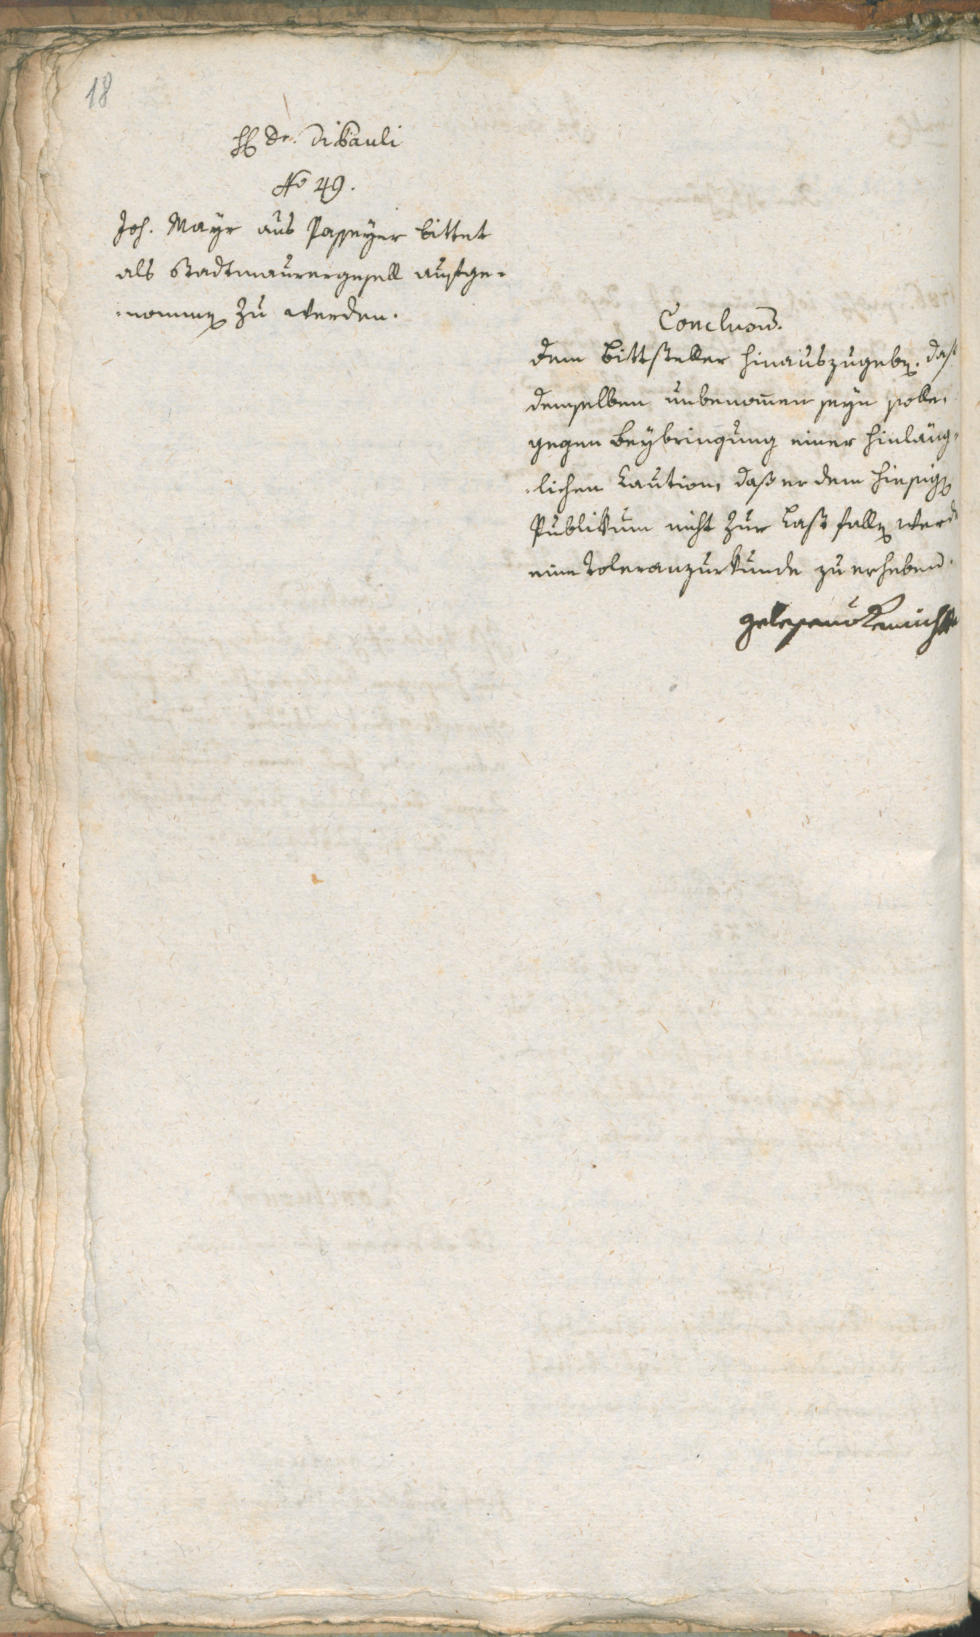 18
H Dr. Di Pauli
No 49.
Joh. Mayr aus Passeyer bittet
als Stadtmaurergesell aufge-
nommen zu werden.
Conclusum.
Dem Bittsteller hinauszugeben. daß
demselben unbenommen seyn solle,
gegen Beybringung einer hinläng-
lichen Caution, daß er dem hiesigen
Publikum nicht zur Last fallen werde
eine Toleranzurkunde zu erheben.
gelesen